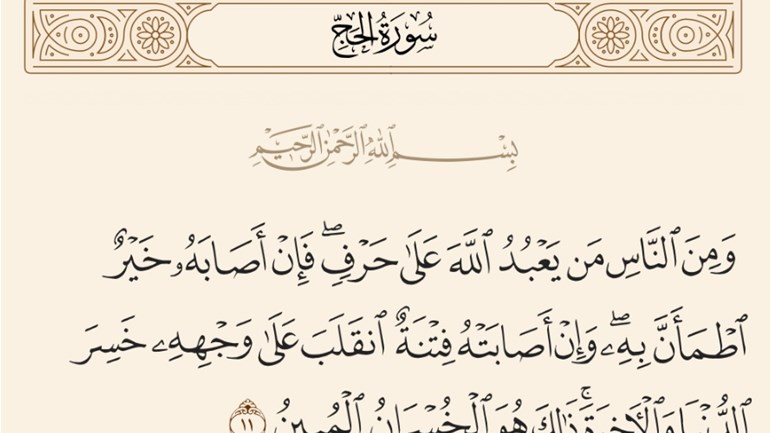 سُورَةُ الحَجِّ
بِسْمِ ٱللَّهِ ٱلرَّحْمَٰنِ ٱلرَّحِيمِ
وَمِنَ ٱلنَّاسِ مَن يَعْبُدُ ٱللَّهَ عَلَىٰ حَرْفٍۖ فَإِنْ أَصَابَهُۥ خَيْرٌ
ٱطْمَأَنَّ بِهِۦۖ وَإِنْ أَصَابَتْهُ فِتْنَةٌ ٱنقَلَبَ عَلَىٰ وَجْهِهِۦ خَسِرَ
ٱلدُّنْيَا وَٱلْءَاخِرَةَۚ ذَٰلِكَ هُوَ ٱلْخُسْرَانُ ٱلْمُبِينُ ١١